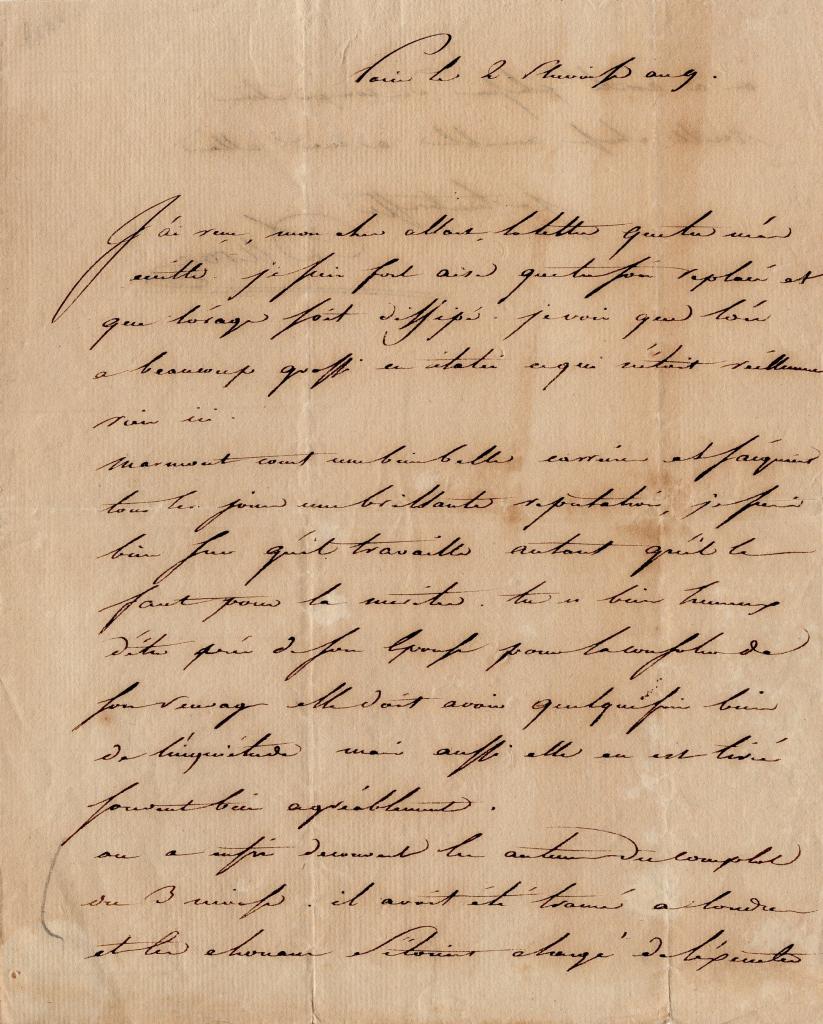 Paris le 2 Pluviose an 9.
J'ai recu, mon cher allart, la lettre que tu m'as
ecritte. je suis fort aise que tu sois replacé et
que l'orage soit dissipé. je vois que l'on
a beaucoup grossi en italie ce qui n'étoit réellement
rien ici.
marmont court une bien belle carriere et s'acquiert
tous les jours une brillante reputation, je suis
bien sur qu'il travaille autant qu'il le
faut pour la meriter. tu es bien heureux
d'être près de son Epouse pour la consoler de
son veuvage elle doit avoir quelquefois bien
de l'inquiétude mais aussi elle en est tirée
souvent bien agréablement.
on a enfin decouvert les auteurs du complot
du 3 nivose. il avoit été tramé a londres
et les chouans s'étoient chargé de l'éxecuter